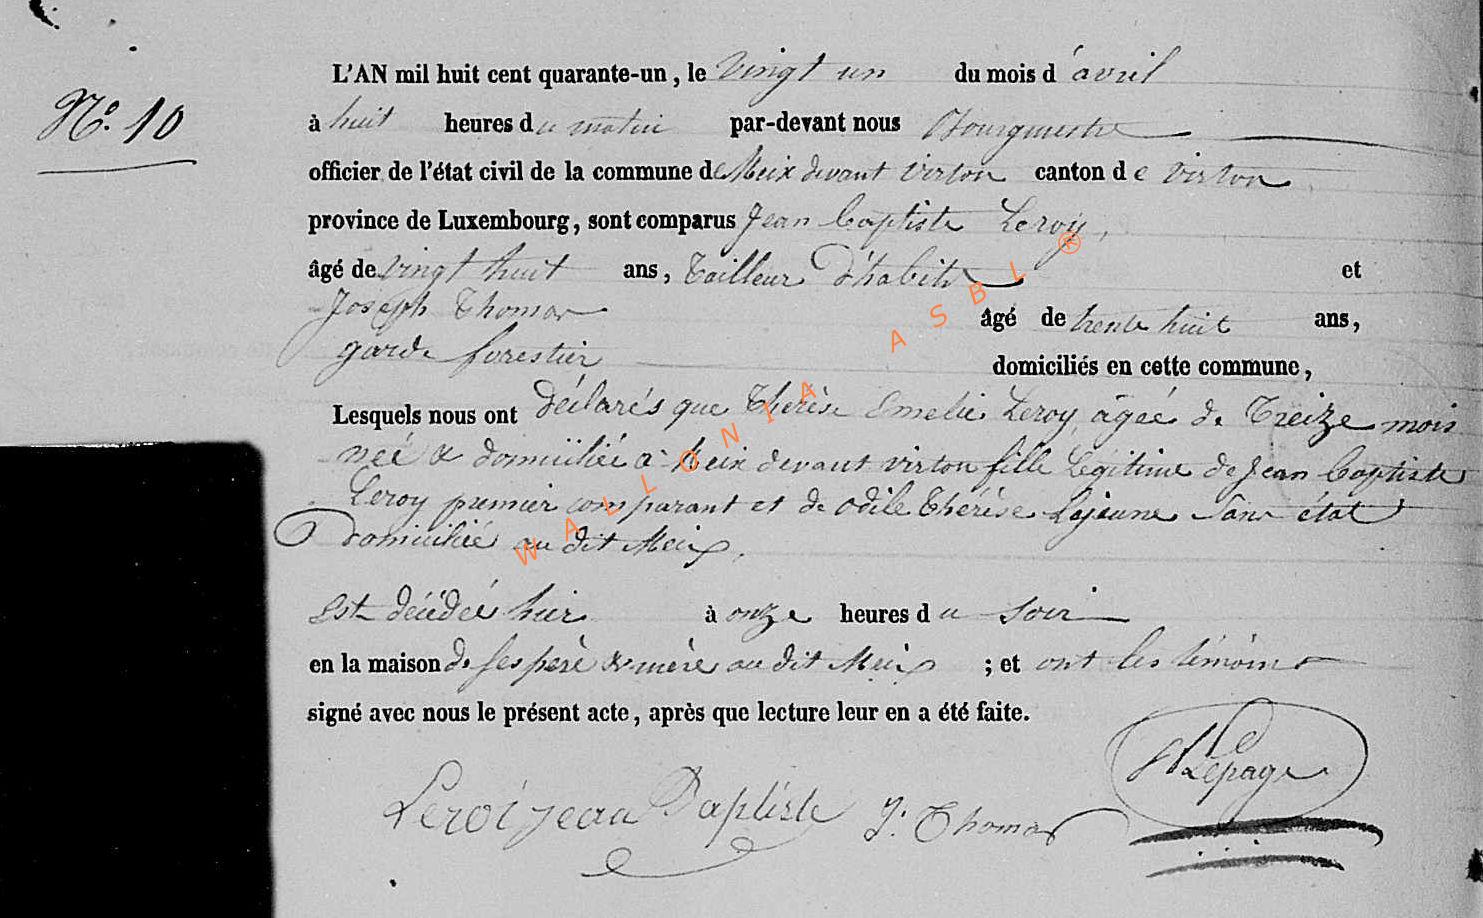 L'AN mil huit cent quarante-un, le Vingt un du mois d'avril
N.º 10
à huit heures du matin par-devant nous Bourgmestre
officier de l'état civil de la commune de Meix devant virton canton de virton
province de Luxembourg, sont comparus Jean Baptiste Leroy,
âgé de vingt huit ans, Tailleur D'habits et
Joseph Thomas âgé de trente huit ans,
garde forestier domiciliés en cette commune,
Lesquels nous ont déclarés que Thérèse Emelie Leroy âgée de Treize mois
née & domiciliée à Meix devant virton fille Légitime de Jean Baptiste
Leroy premier comparant et de Odile Thérèse Lejeune Sans état
Domiciliée au dit Meix.
Est décédée hier à onze heures du Soir
en la maison de ses père & mère au dit Meix ; et ont les témoins
signé avec nous le présent acte, après que lecture leur en a été faite.
Leroi jean Baptiste J. Thomas Lepage
WALLONIA ASBL ®